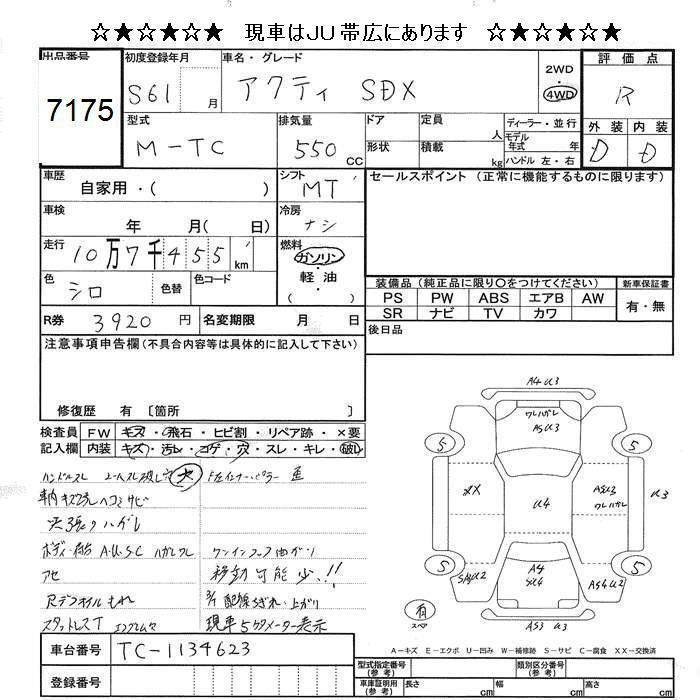 ☆★☆★☆★ 現車はJU帯広にあります ☆★☆★☆★
出品番号 7175
初度登録年月 S61 月
車名・グレード アクティ SDX
2WD
4WD
評価点 R
外装 内装
D D
型式 M-TC
排気量 550 CC
ドア 定員 人
形状 積載 kg
ディーラー・並行
モデル年式 年
ハンドル 左・右
車歴 自家用・( )
シフト MT
セールスポイント(正常に機能するものに限ります)
車検 年 月( 日)
冷房 ナシ
走行 10万7千455 km
燃料 ガソリン・軽油 ( )
色 シロ 色替 色コード
装備品(純正品に限り○をつけてください)
新車保証書 有・無
PS PW ABS エアB AW
SR ナビ TV カワ
R券 3920 円 名変期限 月 日
後日品
注意事項申告欄(不具合内容等は具体的に記入して下さい)
修復歴 有 〔箇所 〕
検査員記入欄
FW キズ・飛石・ヒビ割・リペア跡・×要
内装 キズ・汚レ・コゲ・穴・スレ・キレ・破レ
ハンドルスレ
天張りハガレ
ボディー
A.U.S.C
移動可能 少、!!
現車5ケタメーター表示
スタッドレスT
A4 U3
AS U3
5
5
XX
U4
U3
A4
5
5
SA U2
AS4 U2
有
スペア
AS3 U3
A-キズ E-エクボ U-凹み W-補修跡 S-サビ C-腐食 XX-交換済
車台番号 TC-1134623
登録番号
型式指定番号(参考)
類別区分番号(参考)
車庫証明用(参考) 長さ cm 幅 cm 高さ cm